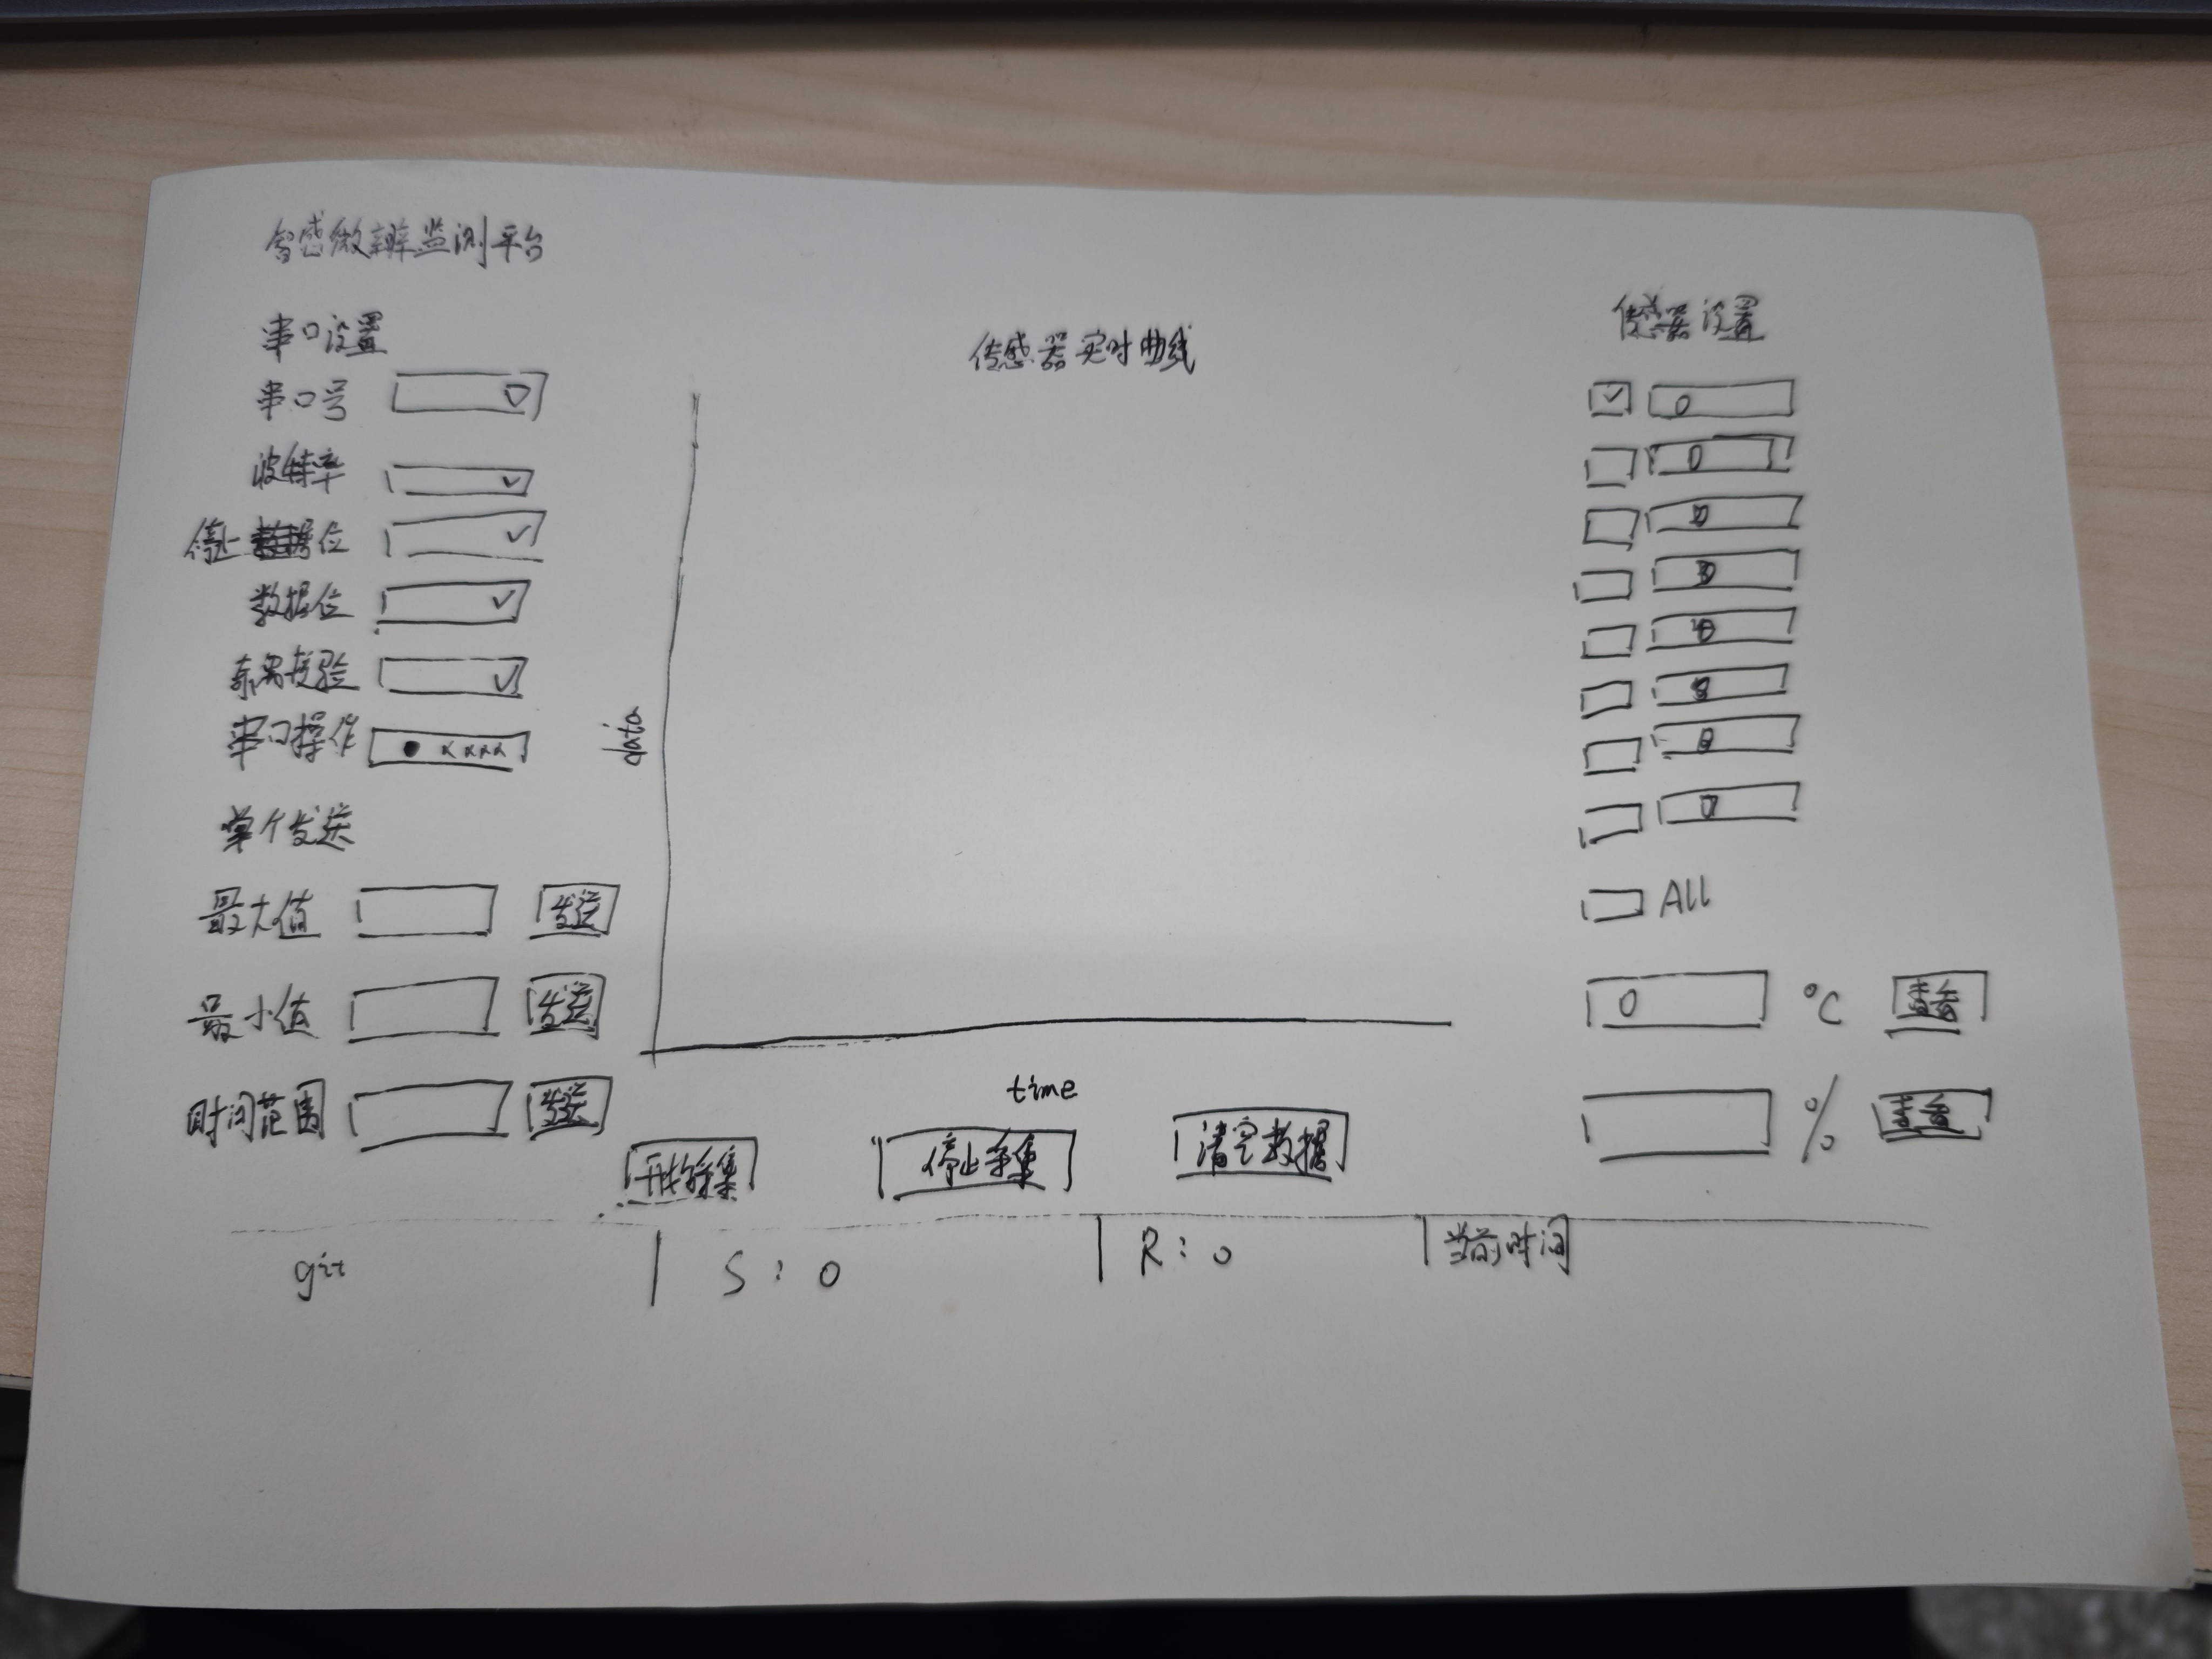 智感微辨监测平台
串口设置
串口号
波特率
停止位
数据位
奇偶校验
串口操作 ● xxxx
单个发送
最大值 发送
最小值 发送
时间范围 发送
传感器实时曲线
data
time
开始采集 停止采集 清空数据
传感器设置
0
0
0
0
0
0
0
0
All
0 °C 查看
% 查看
git S：0 R：0 当前时间